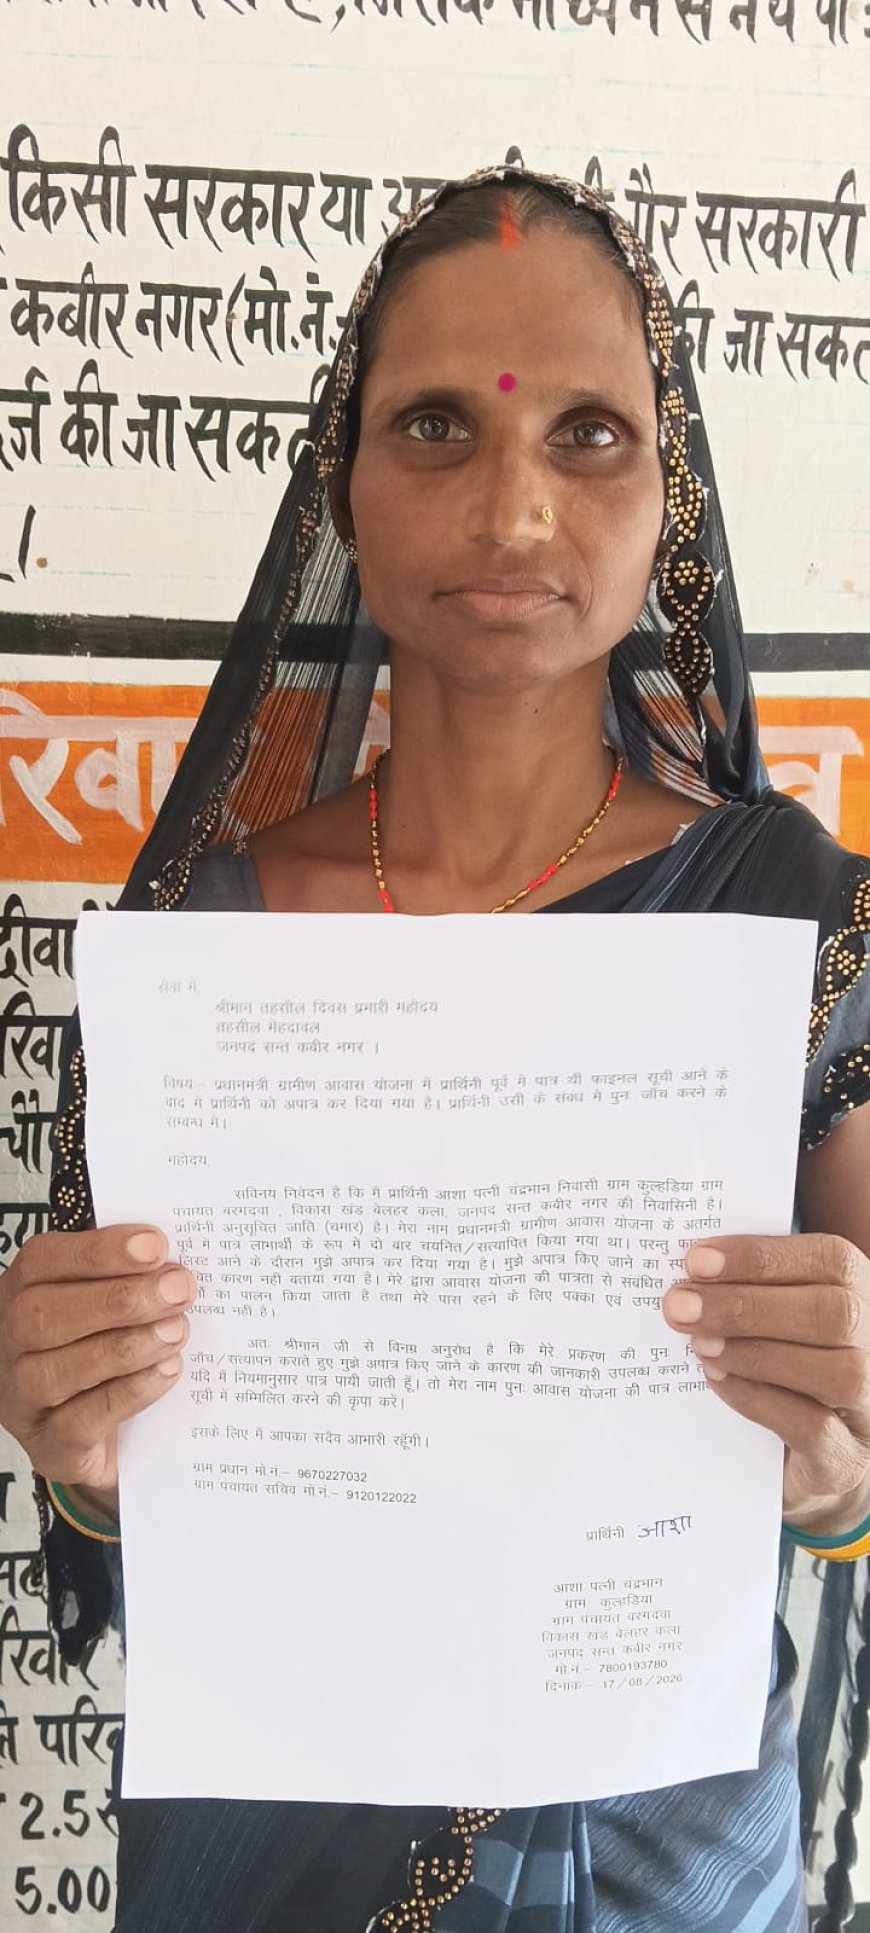 किसी सरकार या
गैर सरकारी
कबीर नगर (मो.नं.
की जा सकत
दर्ज की जा सकती
सेवा में,
श्रीमान तहसील दिवस प्रभारी महोदय
तहसील मेंहदावल
जनपद सन्त कबीर नगर ।
विषय:– प्रधानमंत्री ग्रामीण आवास योजना में प्रार्थिनी पूर्व में पात्र थी फाइनल सूची आने के
बाद में प्रार्थिनी को अपात्र कर दिया गया है। प्रार्थिनी उसी के संबंध में पुनः जाँच करने के
सम्बन्ध में।
महोदय,
सविनय निवेदन है कि मैं प्रार्थिनी आशा पत्नी चंद्रभान निवासी ग्राम कुल्हडिया ग्राम
पंचायत बरगदवा , विकास खंड बेलहर कला, जनपद सन्त कबीर नगर की निवासिनी है।
प्रार्थिनी अनुसूचित जाति (चमार) है। मेरा नाम प्रधानमंत्री ग्रामीण आवास योजना के अंतर्गत
पूर्व में पात्र लाभार्थी के रूप में दो बार चयनित/सत्यापित किया गया था। परन्तु
लिस्ट आने के दौरान मुझे अपात्र कर दिया गया है। मुझे अपात्र किए जाने का
कारण नहीं बताया गया है। मेरे द्वारा आवास योजना की पात्रता से संबंधित
का पालन किया जाता है तथा मेरे पास रहने के लिए पक्का एवं
उपलब्ध नही है।
अतः श्रीमान जी से विनम्र अनुरोध है कि मेरे प्रकरण की पुनः
जाँच/सत्यापन कराते हुए मुझे अपात्र किए जाने के कारण की जानकारी उपलब्ध कराने
यदि मैं नियमानुसार पात्र पायी जाती हूँ। तो मेरा नाम पुनः आवास योजना की पात्र
सूची में सम्मिलित करने की कृपा करें।
इसके लिए मैं आपका सदैव आभारी रहूँगी।
ग्राम प्रधान मो.नं.– 9670227032
ग्राम पंचायत सचिव मों नं.– 9120122022
प्रार्थिनी आशा
आशा पत्नी चंद्रभान
ग्राम कुल्हडिया
ग्राम पंचायत बरगदवा
विकास खंड बेलहर कला
जनपद सन्त कबीर नगर
मो.न.– 7800193780
दिनांक:– 17/08/2026
2.5
5.00